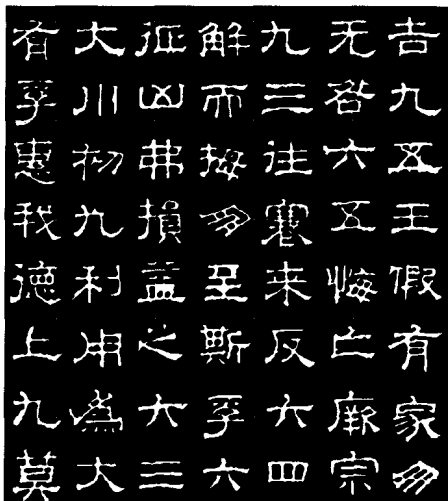 吉九五王假有家勿
无咎六五悔亡厥宗
九三往蹇来反六四
解而拇朋至斯孚六
征凶弗損益之六三
大川初九利用為大
有孚惠我德上九莫